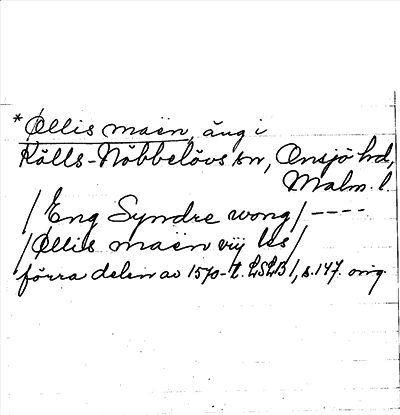 *Øllis maën, äng i
Källs-Nöbbelövs sn, Onsjö hd,
Malm. l.
/Eng Syndre wong/ ----
/Øllis maën vij les/
förra delen av 1570-t. LSLB1, s.147. orig.